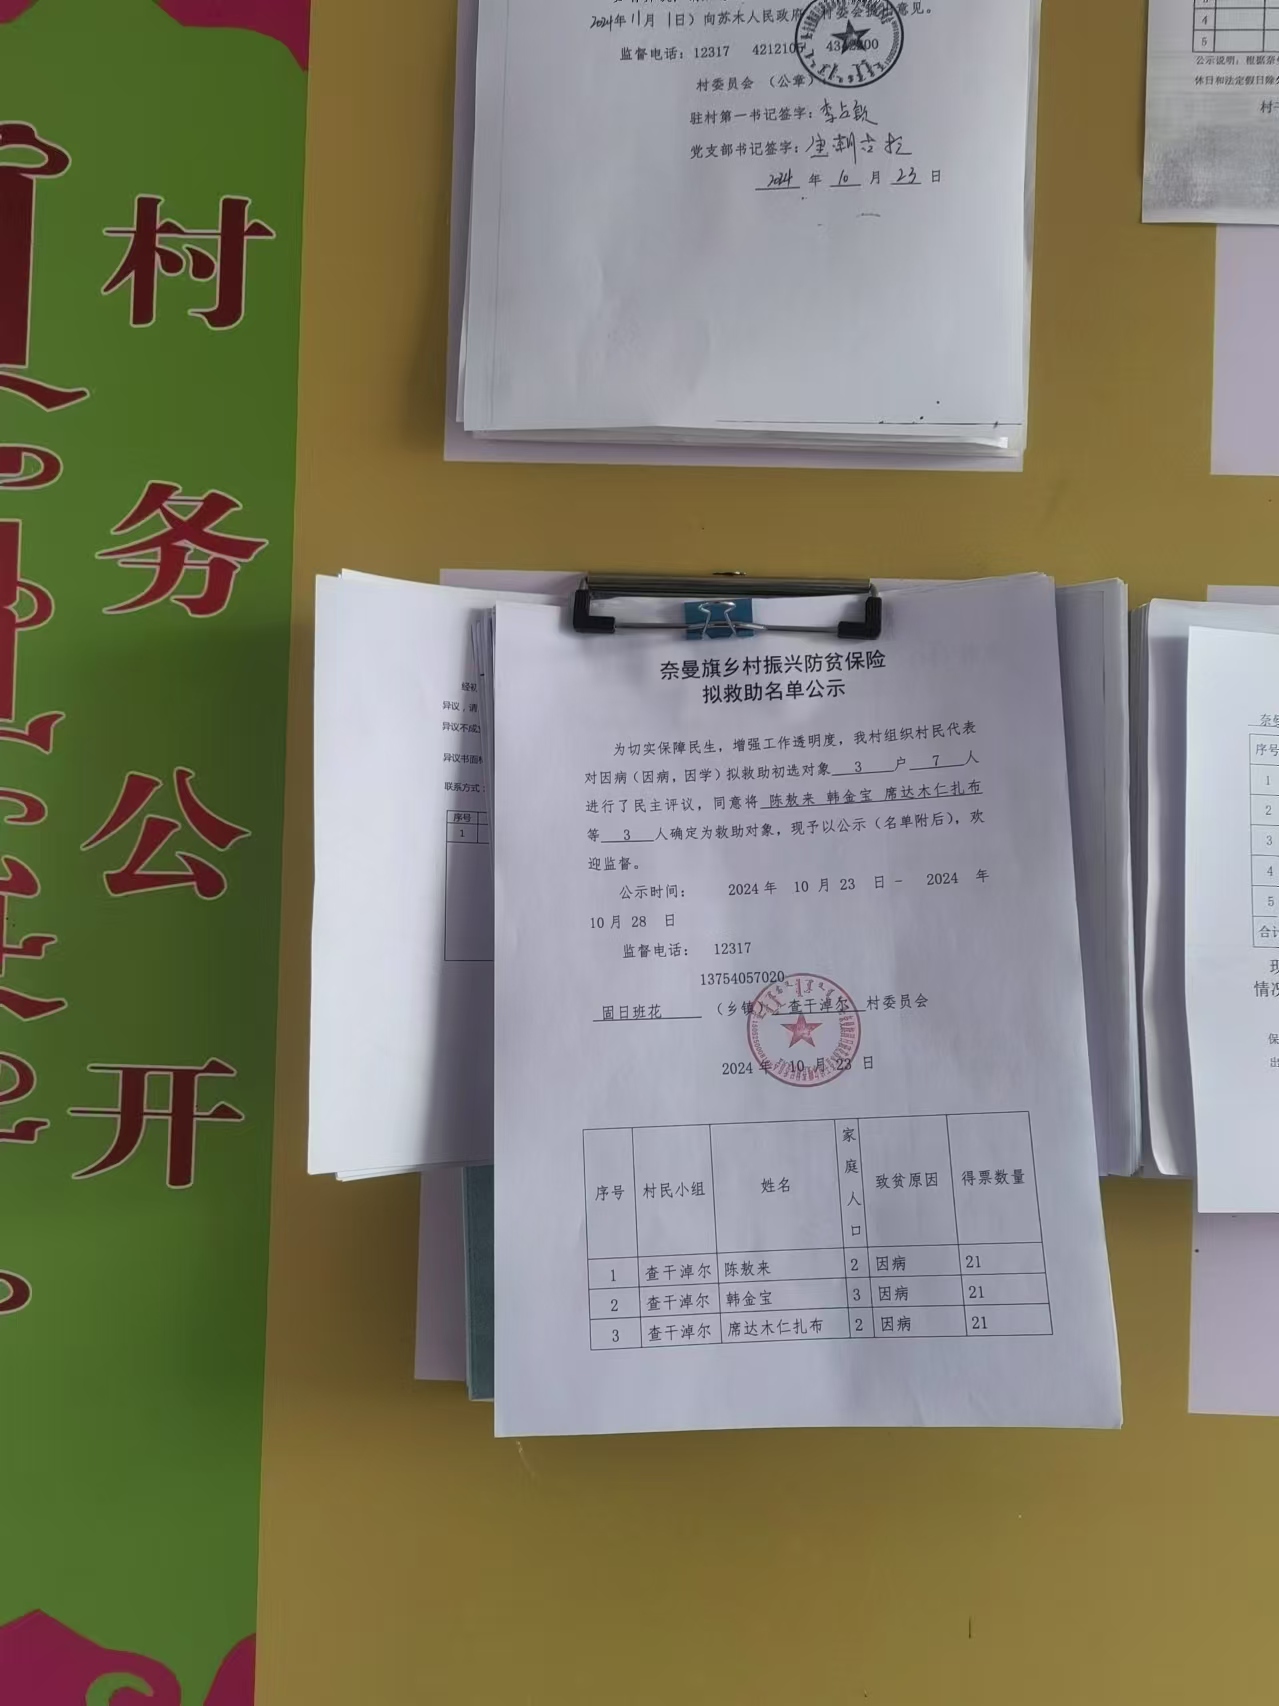 村务公开
2024年11月1日）向苏木人民政府
意见。
监督电话：12317 4212105
村委员会 （公章）
驻村第一书记签字：
党支部书记签字：
2024 年 10 月 23 日
4
5
公示说明：根据奈
休日和法定假日除
异议，请
异议书面
联系方式：
序号
1
奈曼旗乡村振兴防贫保险
拟救助名单公示
为切实保障民生，增强工作透明度，我村组织村民代表
对因病（因病，因学）拟救助初选对象 3 户 7 人
进行了民主评议，同意将 陈敖来 韩金宝 席达木仁扎布
等 3 人确定为救助对象，现予以公示（名单附后），欢
迎监督。
公示时间： 2024年 10 月 23 日 - 2024 年
10 月 28 日
监督电话： 12317
13754057020
固日班花 （乡镇） 查干淖尔 村委员会
2024 年 10 月 23 日
序号 村民小组 姓名 家庭人口 致贫原因 得票数量
1 查干淖尔 陈敖来 2 因病 21
2 查干淖尔 韩金宝 3 因病 21
3 查干淖尔 席达木仁扎布 2 因病 21
序号
1
2
3
4
5
合计
情况